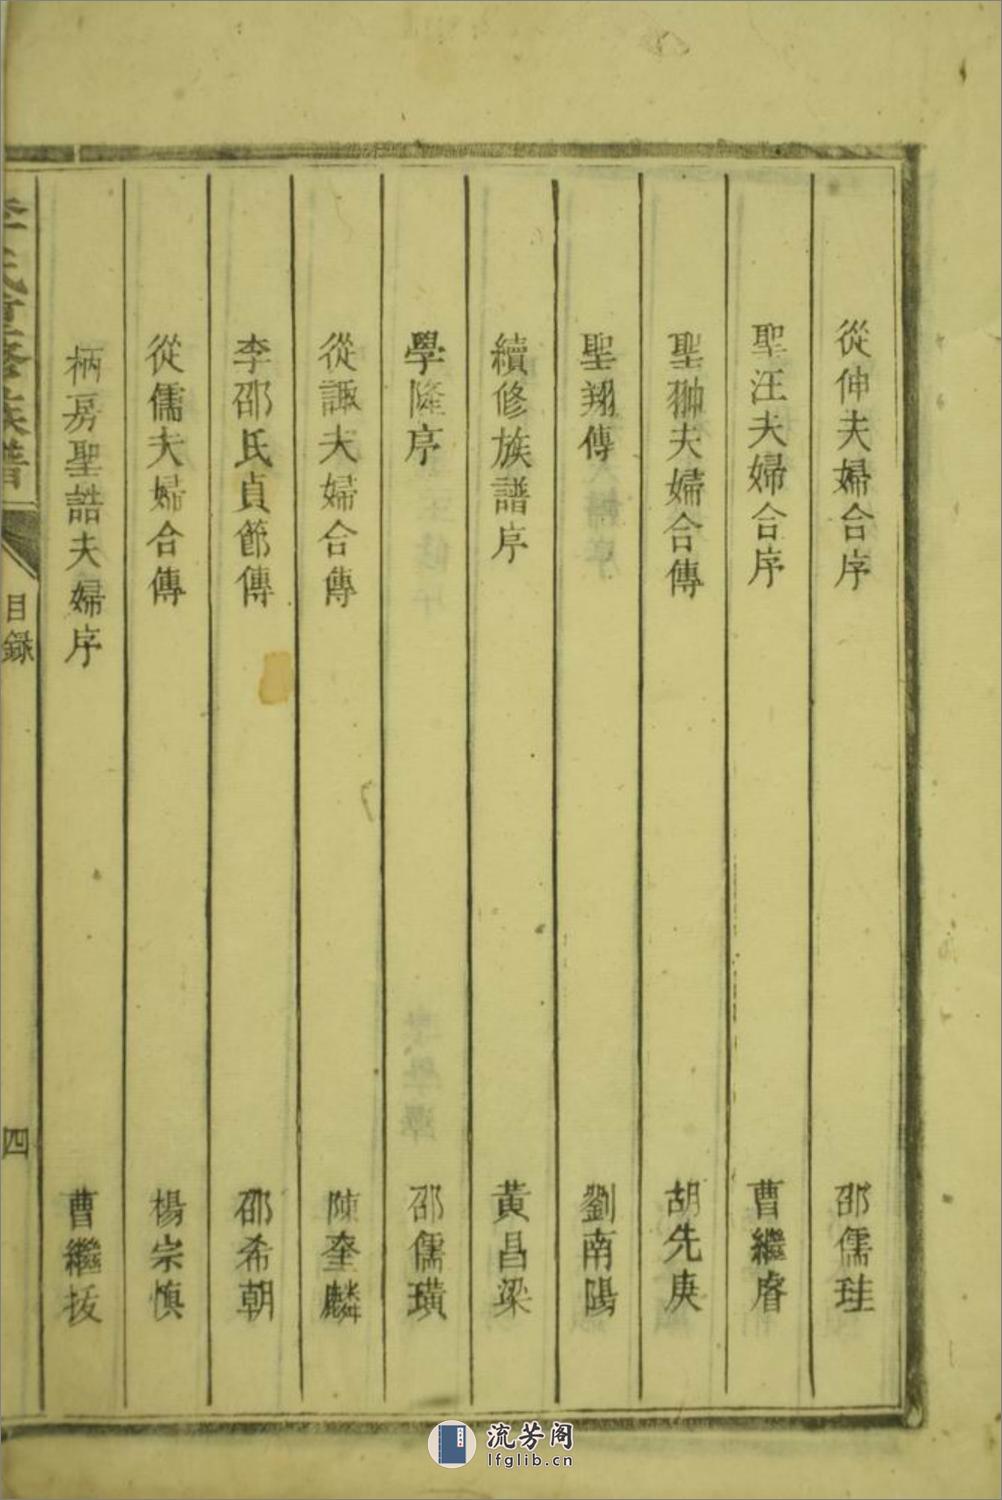 從伸夫婦合序 邵儒珪
聖汪夫婦合序 曹繼睿
聖翀夫婦合傳 胡先庚
聖翔傳 劉南陽
續修族譜序 黃昌梁
學隆序 邵儒璜
從諏夫婦合傳 陳奎麟
李邵氏貞節傳 邵希朝
從儒夫婦合傳 楊宗慎
柄房聖誥夫婦序 曹繼拔
李氏重修族譜 目録 四
流芳阁
lfglib.cn